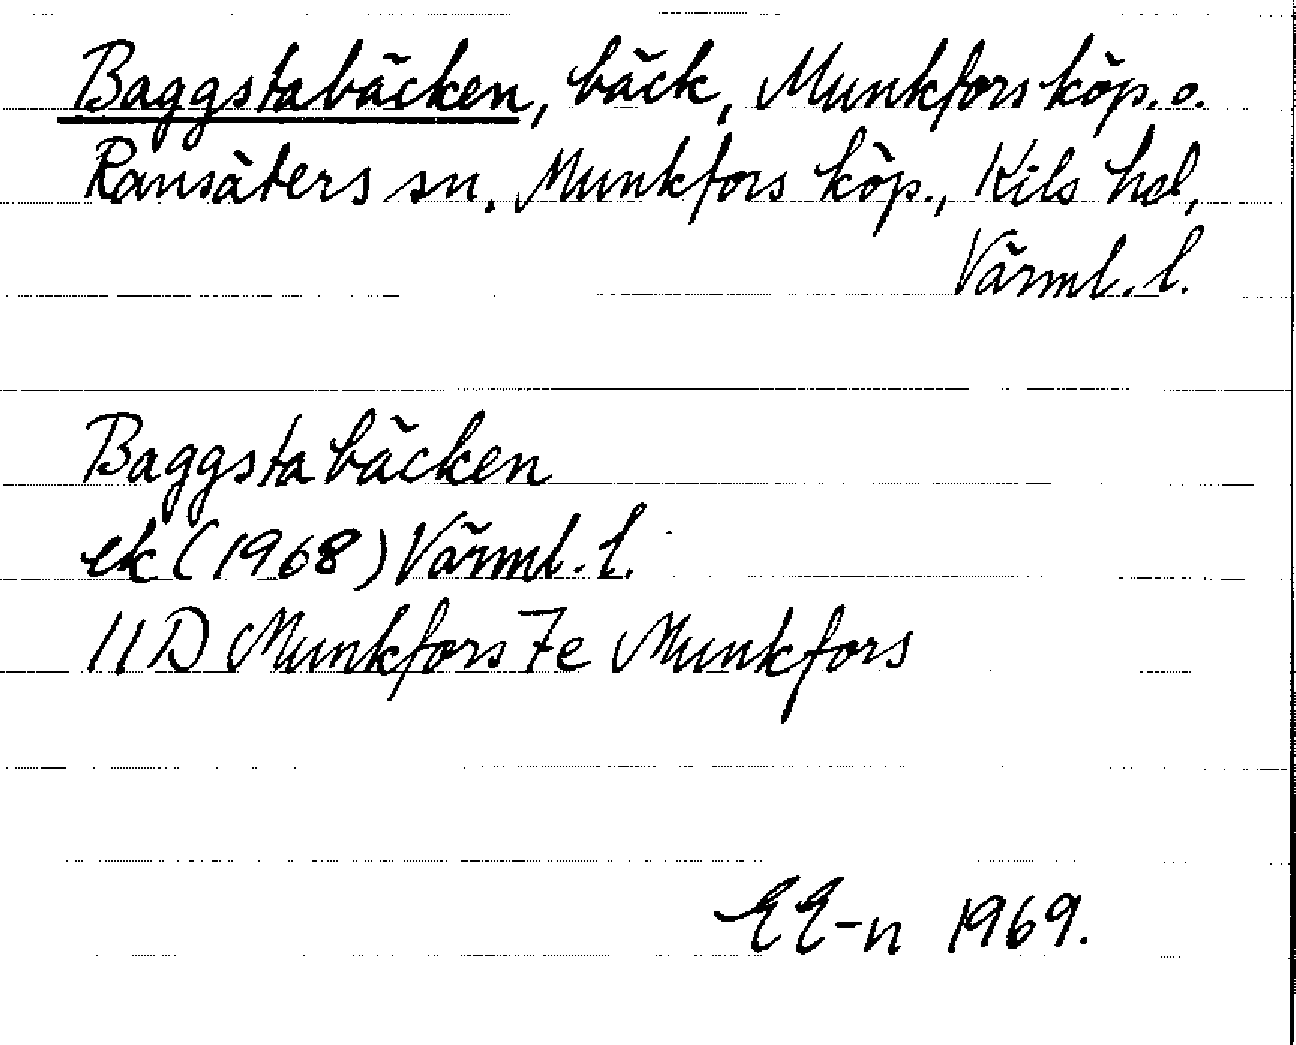 Baggstabäcken, bäck, Munkfors köp. o.
Ransäters sn. Munkfors köp., Kils hd,
Värml. l.
Baggstabäcken
ek (1968) Värml. l.
11D Munkfors 7e Munkfors
EE-n 1969.